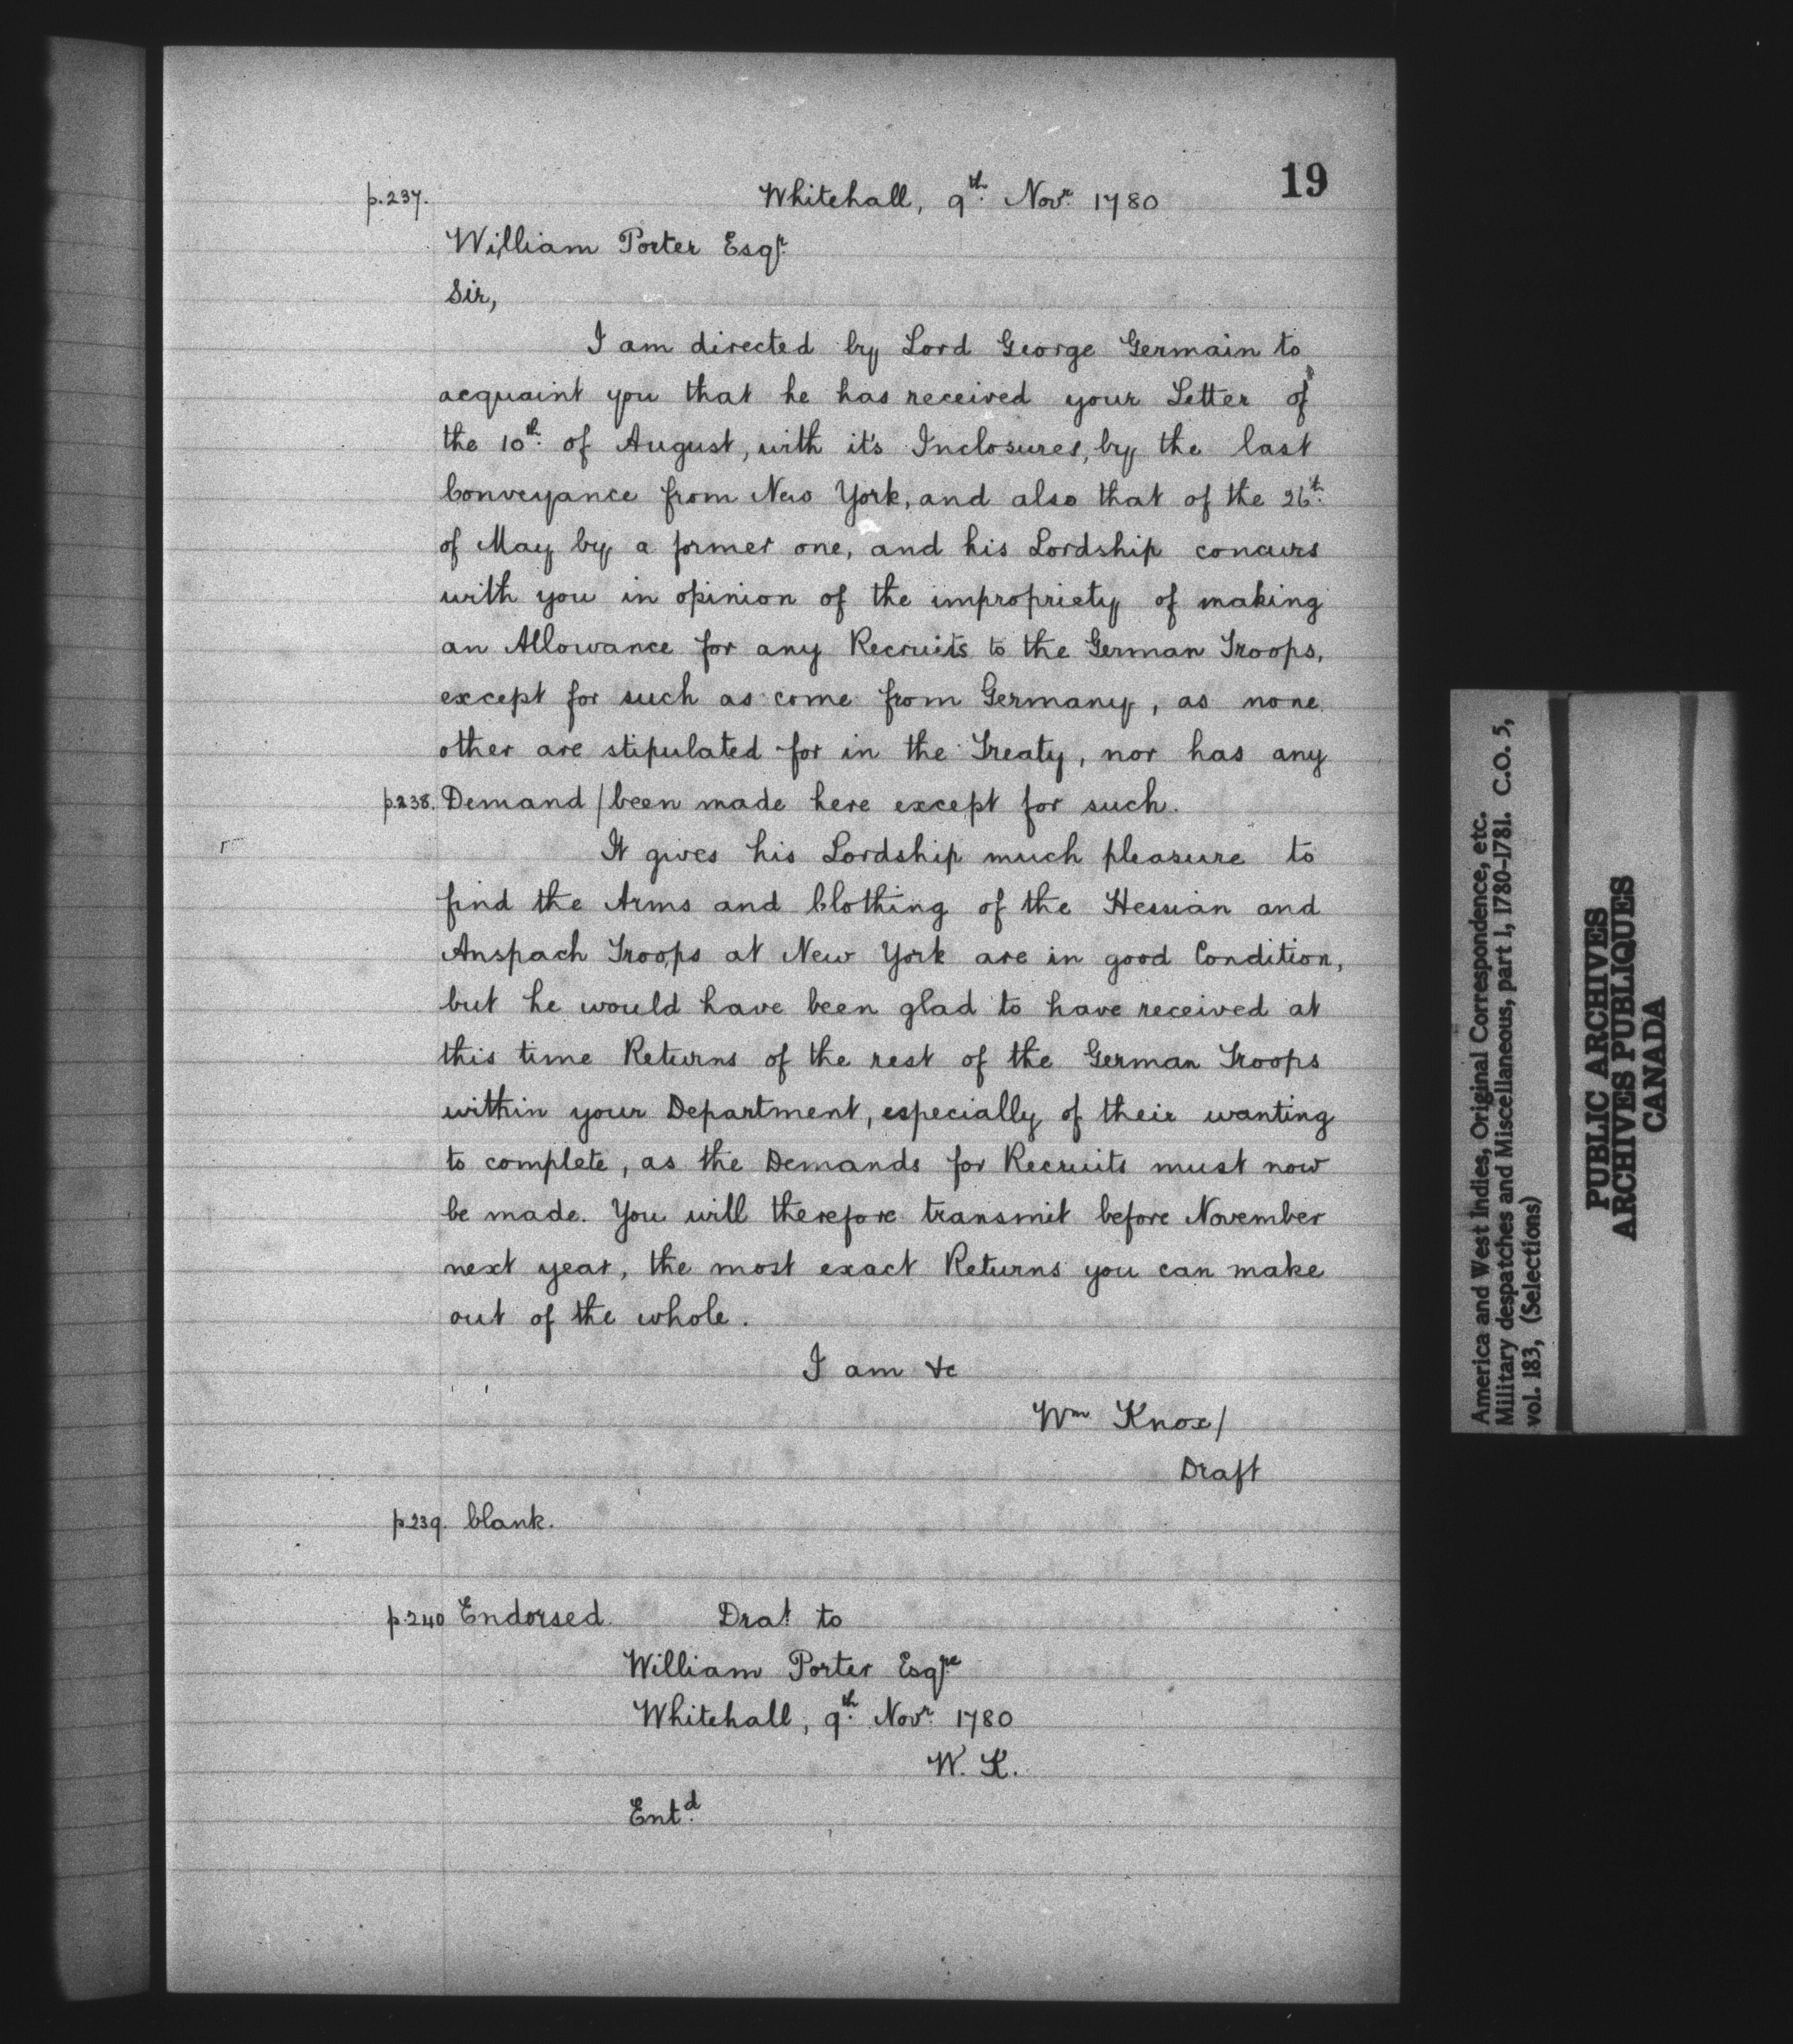 19
p.237. Whitehall, 9th. Novr. 1780
William Porter Esqr.
Sir,
I am directed by Lord George Germain to
acquaint you that he has received your Letter of
the 10th. of August, with it's Inclosures, by the last
Conveyance from New York, and also that of the 26t.
of May by a former one, and his Lordship concurs
with you in opinion of the impropriety of making
an Allowance for any Recruits to the German Troops,
except for such as come from Germany, as none
other are stipulated for in the Treaty, nor has any
p.238. Demand / been made here except for such.
It gives his Lordship much pleasure to
find the Arms and Clothing of the Hessian and
Anspach Troops at New York are in good Condition,
but he would have been glad to have received at
this time Returns of the rest of the German Troops
within your Department, especially of their wanting
to complete, as the Demands for Recruits must now
be made. You will therefore transmit before November
next year, the most exact Returns you can make
out of the whole.
I am &c
Wm Knox/
Draft
p.239. blank.
p.240 Endorsed. Drat to
William Porter Esqre
Whitehall, 9th. Novr. 1780
W. K.
Entd.
America and West Indies, Original Correspondence, etc.
Military despatches and Miscellaneous, part 1, 1780-1781. C.O. 5,
vol. 183, (Selections)
PUBLIC ARCHIVES
ARCHIVES PUBLIQUES
CANADA